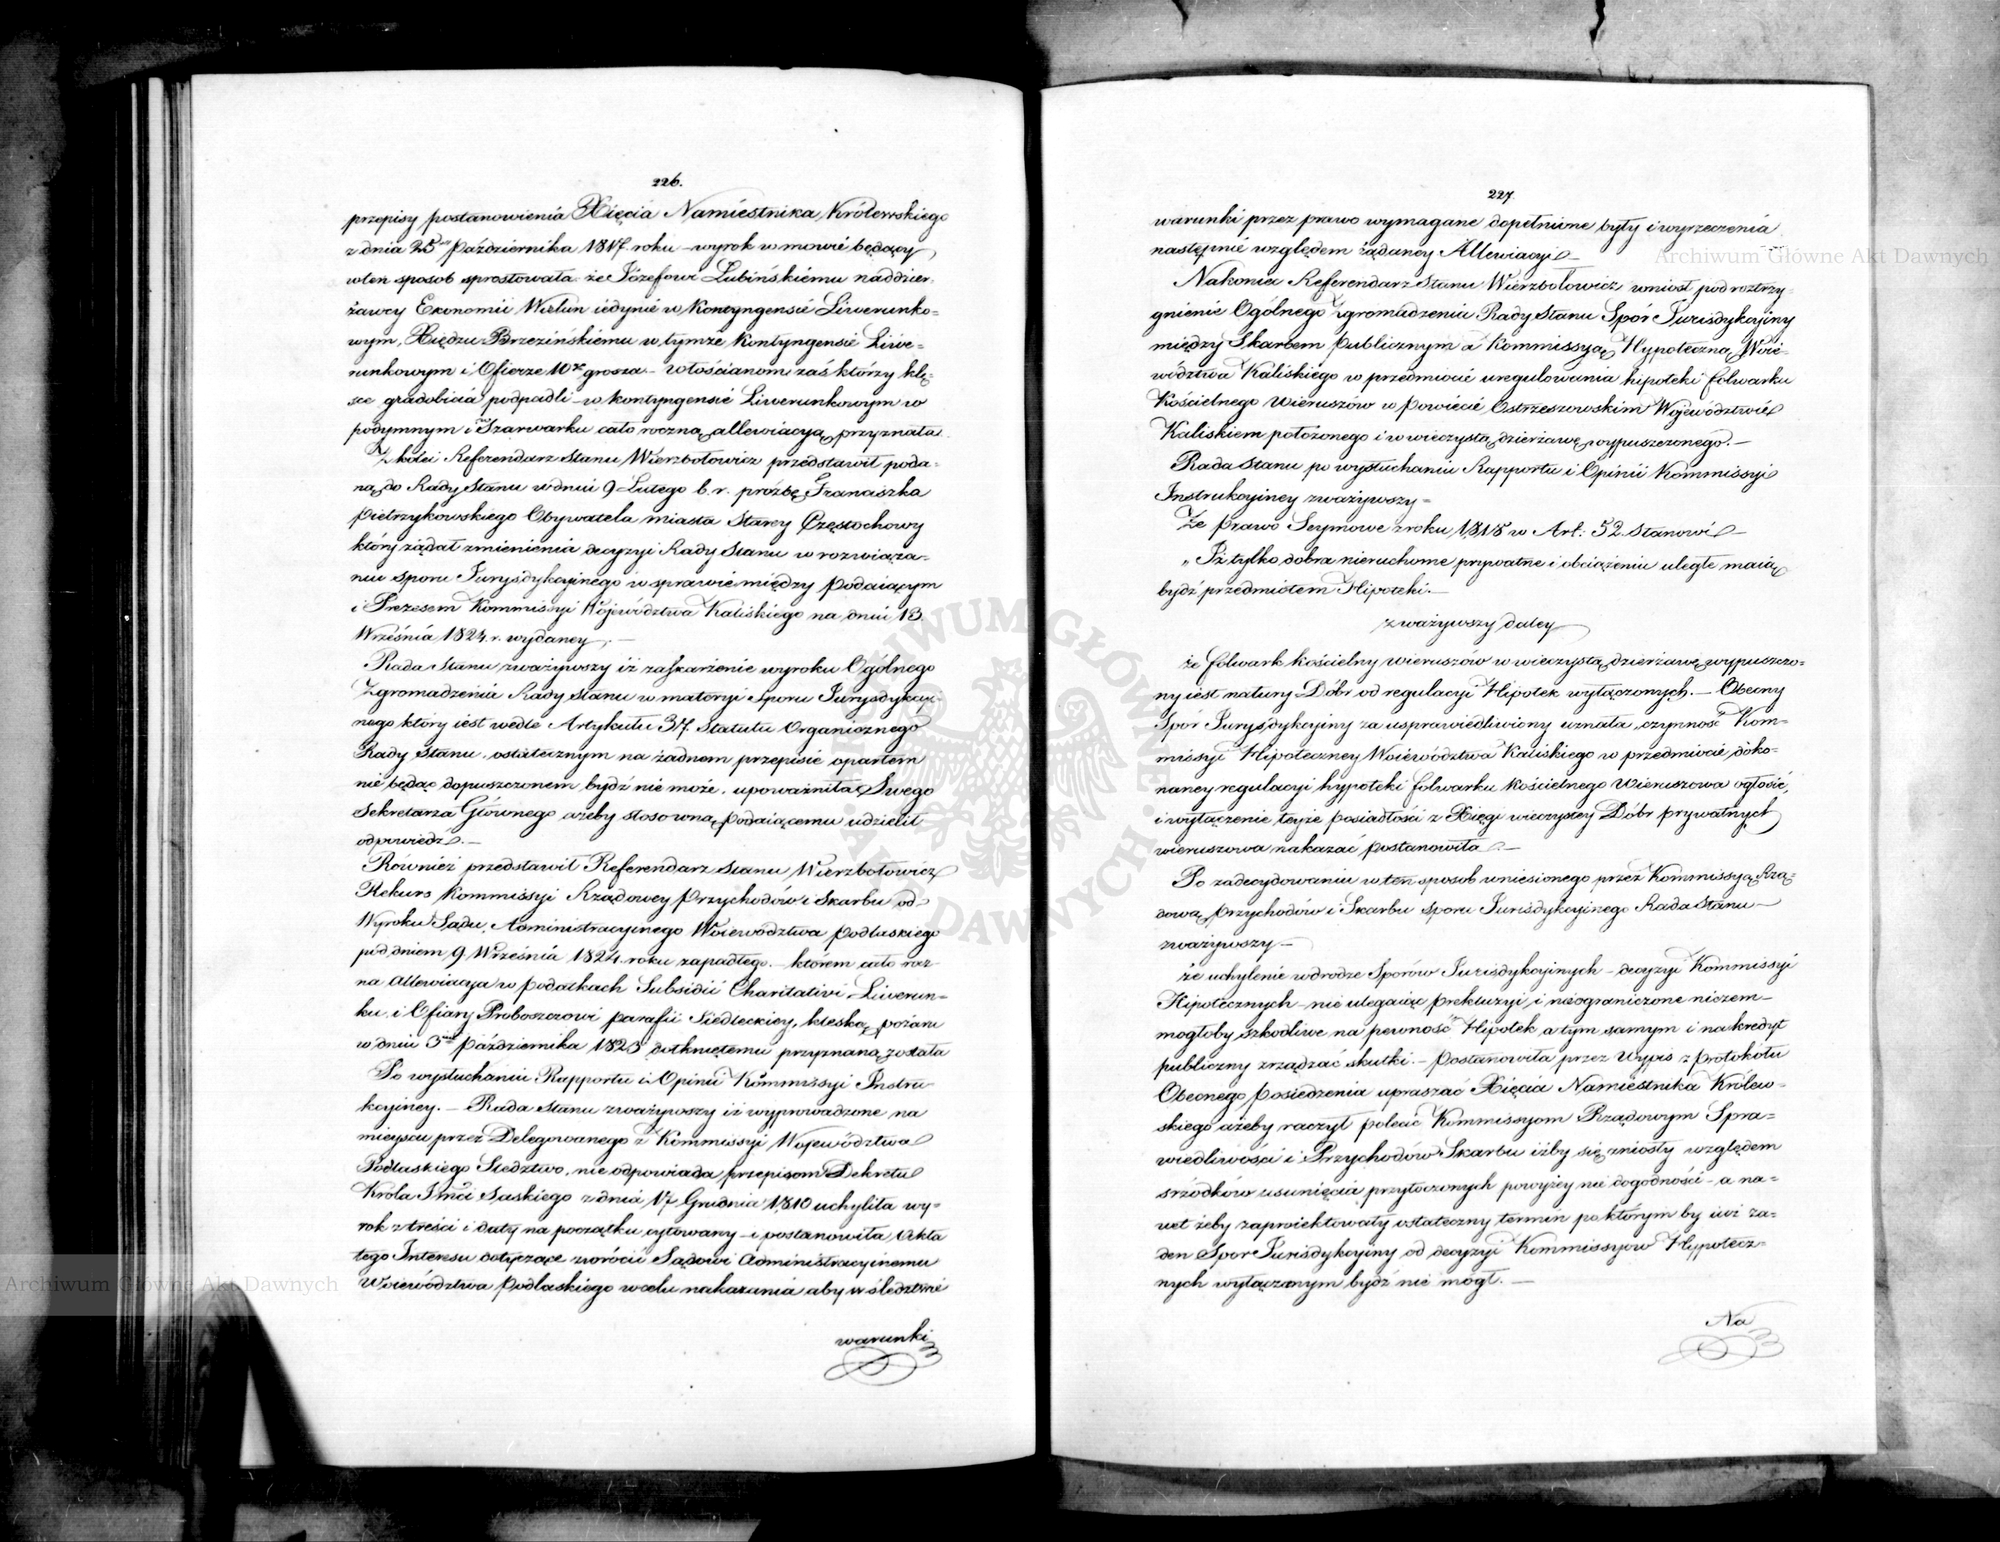 226.
przepisy postanowienia Xięcia Namiestnika Królewskiego
z dnia 25 Października 1817. roku – wyrok w mowie będący
w ten sposob sprostowała że Józefowi Lubińskiému naddzier-
żawcy Ekonomii Wieluń iedynie w Kontyngensie Liwerunko-
wym, Xiędzu Brzezińskiemu w tymże Kontyngensie Liwe-
runkowym i Ofierze 10go grosza – Włościanom zaś którzy klę-
sce gradobicia podpadli – w kontyngensie Liwerunkowym w
podymnym i Szarwarku cało roczną allewiacyą przyznała.
Z kolei Referendarz Stanu Wierzbołowicz przedstawił poda-
ną do Rady Stanu w dniu 9 Lutego b. r. prózbę Franciszka
Pietrzykowskiego Obywatela miasta Starey Częstochowy
który żądał zmienienia decyzyi Rady Stanu w rozwiąza-
niu sporu Jurysdykcyinego w sprawie między podaiącym
i Prezesem Kommissyi Województwa Kaliskiego na dniu 13
Września 1824. r. wydaney. –
Rada Stanu zważywszy iż zaskarżenie wyroku Ogólnego
Zgromadzenia Rady Stanu w materyi Sporu Jurysdykcyi-
nego który iest wedle Artykułu 37. Statutu Organicznego
Rady Stanu, ostatecznym na żadnem przepisie opartem
nie będąc dopuszczonem bydź nie może, upoważniła Swego
Sekretarza Głównego ażeby stosowną podaiącemu udzielił
odpowiedź. –
Równiéż przedstawił Referendarz Stanu Wierzbołowicz
Rekurs Kommissyi Rządowey Przychodów i Skarbu od
Wyroku Sądu Administracyinego Woiewództwa Podlaskiego
pod dniem 9 Września 1824. roku zapadłego. – którem cało rocz-
na allewiacya w podatkach Subsidii Charitativi – Liwerun-
ku, i Ofiary Proboszczowi parafii Siedleckiey, klęską pożaru
w dniu 3 Października 1823 dotkniętemu przyznana została
Po wysłuchaniu Rapportu i Opinii Kommissyi Instru-
kcyiney. – Rada Stanu zważywszy iż wyprowadzone na
mieyscu przez Delegowanego z Kommissyi Województwa
Podlaskiego Śledztwo, nie odpowiada przepisom Dekretu
Króla Jmci Saskiego z dnia 17 Grudnia 1810 uchyliła wy-
rok z treści i daty na początku cytowany – i postanowiła Akta
tego Interesu dotyczące zwrócić Sądowi Administracyinemu
Woiewództwa Podlaskiego w celu nakazania aby w śledztwie
warunki
227.
warunki przez prawo wymagane dopełnione były i wyrzeczenia
następnie względem żądaney Allewiacyi. –
Nakoniec Referendarz Stanu Wierzbołowicz wniosł pod roztrzy-
gnienie Ogólnego Zgromadzenia Rady Stanu Spór Jurisdykcyiny
między Skarbem Publicznym a Kommissyą Hypoteczną Woie-
wództwa Kaliskiego w przedmiocie uregulowania hipoteki folwarku
Kościelnego Wieruszów w Powiecie Ostrzeszowskim Województwie
Kaliskiem położonego i w wieczystą dzierżawę wypuszczonego. –
Rada Stanu po wysłuchaniu Rapportu i Opinii Kommissyi
Instrukcyiney zważywszy =
Że prawo Seymowe z roku 1818 w Art: 52 stanowi –
„Iż tylko dobra nieruchome prywatne i obciążeniu uległe maią
bydź przedmiotem Hipoteki. –
zważywszy daley
że folwark kościelny Wieruszów w wieczystą dzierżawę wypuszczo-
ny iest natury Dóbr od regulacyi Hipotek wyłączonych. – Obecny
Spór Jurysdykcyiny za usprawiedliwiony uznała, czynność Kom-
missyi Hipoteczney Woiewództwa Kaliskiego w przedmiocie doko-
naney regulacyi hypoteki folwarku kościelnego Wieruszowa ogłosić,
i wyłączenie teyże posiadłości z Xięgi wieczystey Dóbr prywatnych
Wieruszowa nakazać postanowiła. –
Po zadecydowaniu w ten sposob wniesionego przez Kommissyą Rzą-
dową Przychodów i Skarbu sporu Jurisdykcyinego Rada Stanu –
zważywszy –
że uchylenie w drodze Sporów Jurisdykcyinych – decyzyi Kommissyi
Hipotecznych – nie ulegaiąc prekluzyi i nieograniczone niczem –
mogłoby szkodliwe na pewność Hipotek a tym samym i na kredyt
publiczny zrządzać skutki. – postanowiła przez Wypis z protokołu
Obecnego posiedzenia upraszać Xięcia Namiestnika Królew-
skiego ażeby raczył polecić Kommissyom Rządowym Spra-
wiedliwości i Przychodów Skarbu iżby się zniosły względem
srzodków usunięcia przytoczonych powyżey nie dogodności – a na-
wet żeby zaproiektowały ostateczny termin po którym by iuż ża-
den Spor Jurisdykcyiny od decyzyi Kommissyow Hypotecz-
nych wyłączonym bydź nie mógł. –
Na
Archiwum Główne Akt Dawnych
Archiwum Główne Akt Dawnych
ARCHIWUM GŁÓWNE AKT DAWNYCH